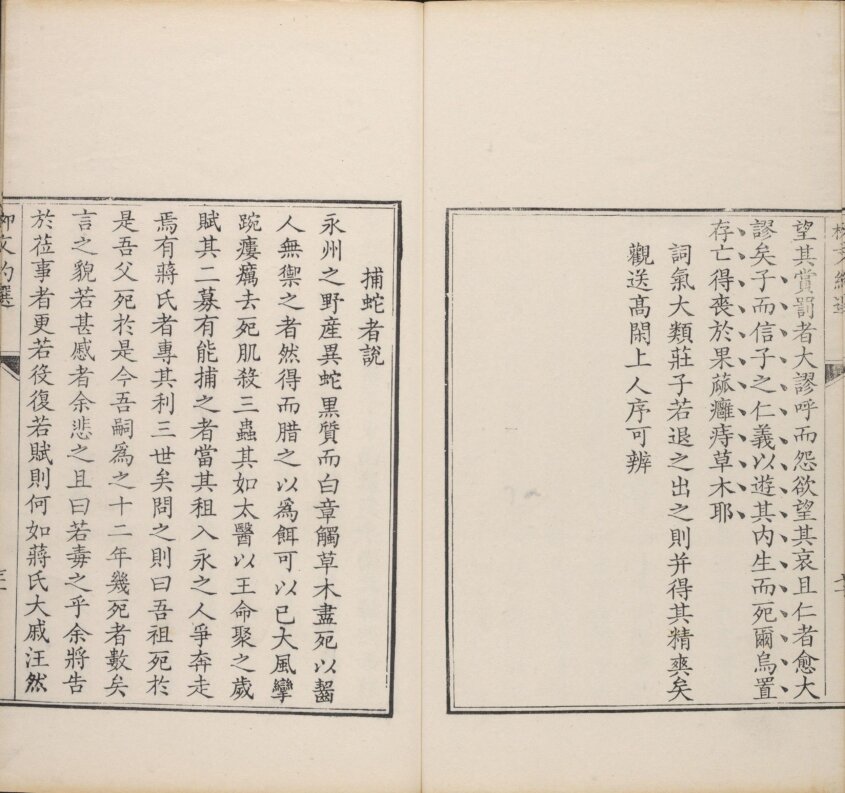 望其賞罰者大謬呼而怨欲望其哀且仁者愈大
謬矣子而信子之仁義以遊其內生而死爾烏置
存亡得喪於果蓏癰痔草木耶
詞氣大類莊子若退之出之則并得其精爽矣
觀送高閑上人序可辨
捕蛇者說
永州之野產異蛇黑質而白章觸草木盡死以齧
人無禦之者然得而腊之以為餌可以已大風攣
踠瘻癘去死肌殺三蟲其如太醫以王命聚之歲
賦其二募有能捕之者當其租入永之人爭奔走
焉有蔣氏者專其利三世矣問之則曰吾祖死於
是吾父死於是今吾嗣為之十二年幾死者數矣
言之貌若甚慼者余悲之且曰若毒之乎余將告
於莅事者更若役復若賦則何如蔣氏大戚汪然
柳文約選